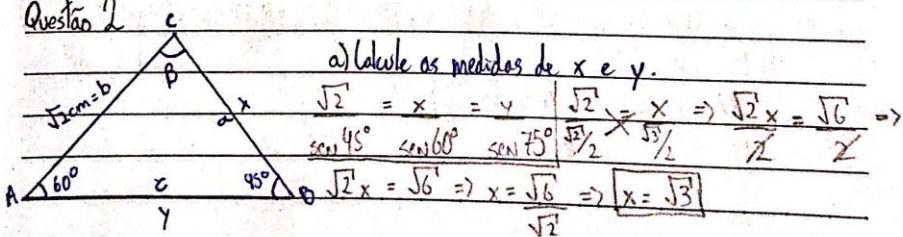 Questão 2
C
β
√2cm=b
x
a
A
60°
c
45°
B
y
a) Calcule as medidas de x e y.
√2/sen 45° = x/sen 60° = y/sen 75° | √2/(√2/2) = x/(√3/2) => √2x/2 = √6/2 =>
√2x = √6 => x = √6/√2 => x = √3